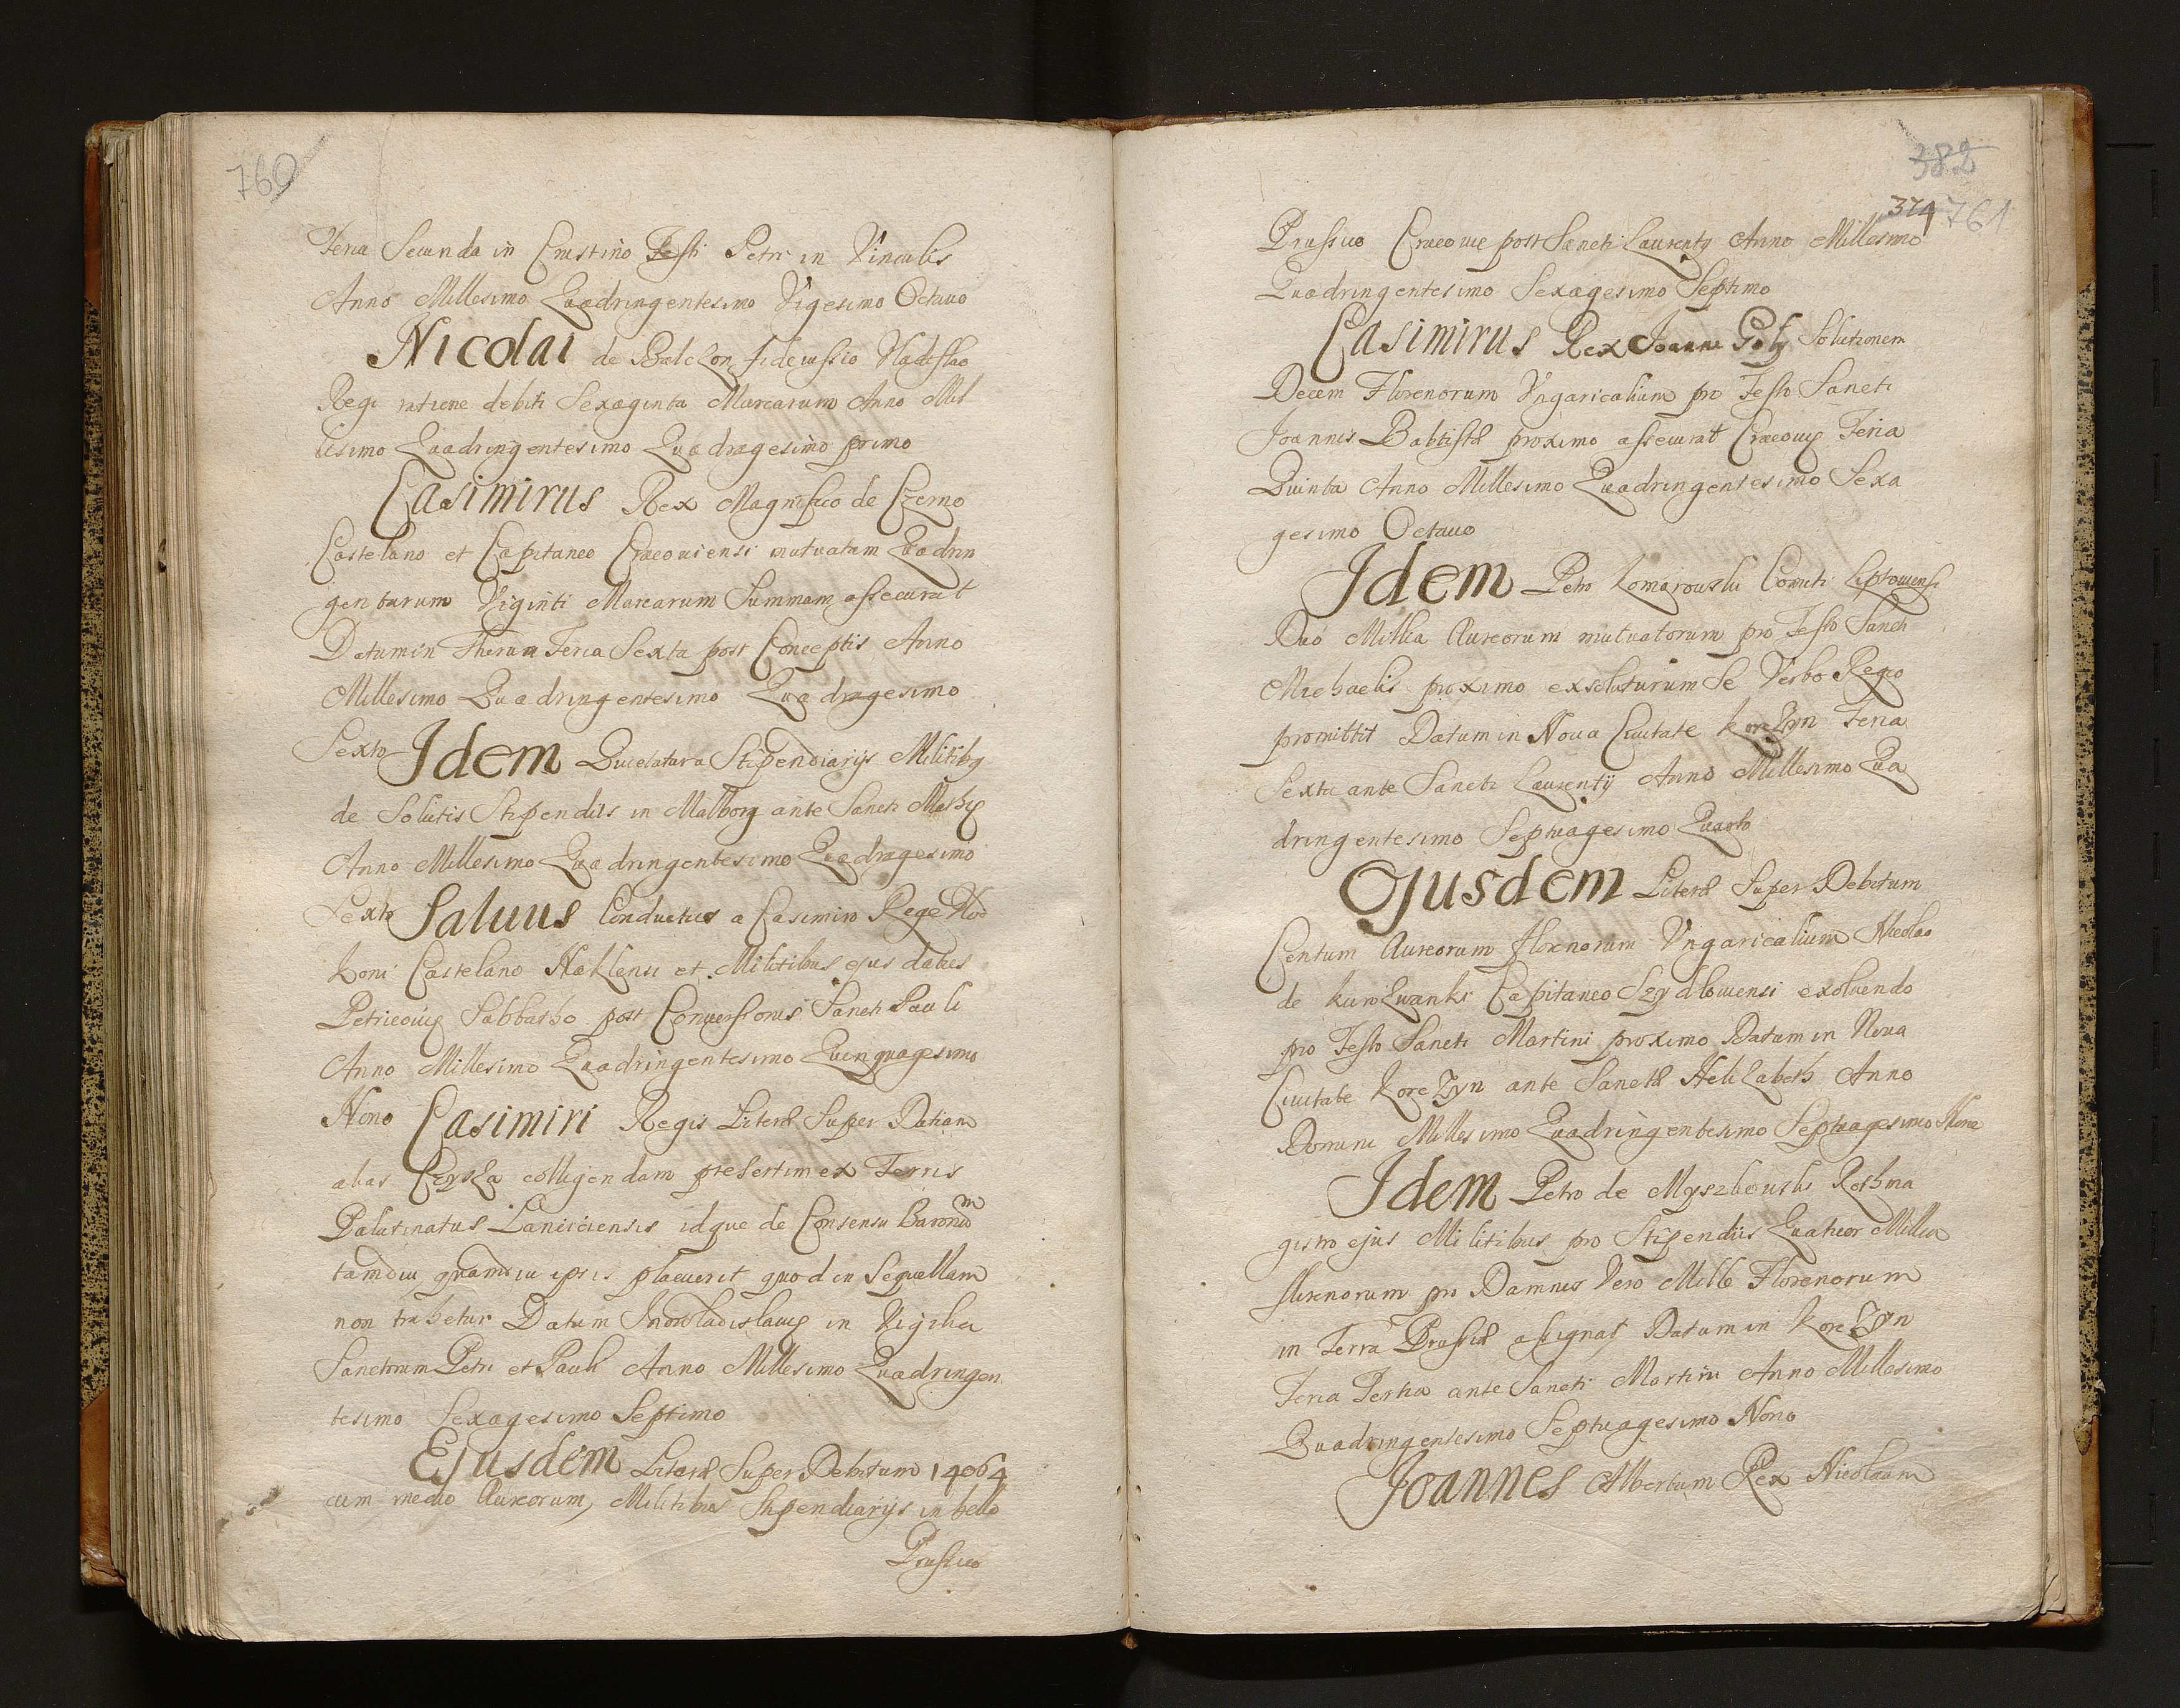 760
Feria Secunda in Crastino Festi Petri in Vinculis
Anno Millesimo Quadringentesimo Vigesimo Octauo
Nicolai de Balczon fideiussio Vladislao
Regi ratione debiti Sexaginta Marcarum Anno Mil
lesimo Quadringentesimo Quadragesimo primo
Casimirus Rex Magnifico de Czerno
Castelano et Capitaneo Cracouiensi mutuatam Quadrin
gentarum Viginti Marcarum Summam assecurat
Datum in Thorun Feria Sexta post Conceptis Anno
Millesimo Quadringentesimo Quadragesimo
Sexto Idem Quietatara Stipendiarijs Militibq
de Solutis Stipendiis in Malborg ante Sancti Mathię
Anno Millesimo Quadringentesimo Quadragesimo
Sexto Saluus Conductus a Casimiro Rege Wod
koni Castelano Naklensi et Militibus ejus dabes
Petricouię Sabbatho post Conuersionis Sancti Pauli
Anno Millesimo Quadringentesimo Quinquagesimo
Nono Casimiri Regis Literæ Super Datiam
alias Czyska colligendam presertim ex Terris
Palatinatus Lanciciensis idque de Consensu Baronum
tamdiu quamdiu ipsis placuerit quod in Sequellam
non trahetur Datum Inowladislauię in Vigilia
Sanctorum Petri et Pauli Anno Millesimo Quadringen
tesimo Sexagesimo Septimo
Ejusdem Literæ Super Debitum 14064
cum medio Aureorum, Militibus Stipendiarijs in bello
Prussico
382
374 761
Prussico Cracouię post Sancti Laurentij Anno Millesimo
Quadringentesimo Sexagesimo Septimo
Casimirus Rex Joanni Goły Solutionem
Decem Florenorum Vngaricalium pro Festo Sancti
Joannis Babtistæ proximo assecurat Cracouię Feria
Quinta Anno Millesimo Quadringentesimo Sexa
gesimo Octauo
Idem Petro Komarowski Comiti Liptouiensi
Duo Millia Aureorum mutuatorum pro Festo Sancti
Michaelis proximo exsoluturum Se Verbo Regio
promittit Datum in Noua Ciuitate Korczyn Feria
Sexta ante Sancti Laurentij Anno Millesimo Qua
dringentesimo Septuagesimo Quarto
Ejusdem Literæ Super Debitum
Centum Aureorum Florenorum Vngaricalium Nicolao
de Kurozwanki Capitaneo Szydlouiensi exoluendo
pro Festo Sancti Martini proximo Datum in Noua
Ciuitate Korczyn ante Sanctæ Helizabeth Anno
Domini Millesimo Quadringentesimo Septuagesimo Nono
Idem Petro de Myszkowski Rothma
gistro ejus Militibus pro Stipendiis Quatuor Millia
florenorum pro Damnis Vero Mille Florenorum
in Terra Prussiæ assignat Datum in Korczyn
Feria Tertia ante Sancti Martini Anno Millesimo
Quadringentesimo Septuagesimo Nono
Joannes Albertum Rex Nicolaum